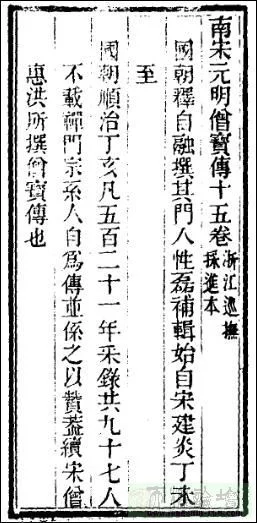 南宋元明僧寶傳十五卷
浙江巡撫
採進本
國朝釋自融撰其門人性磊補輯始自宋建炎丁未
至
國朝順治丁亥凡五百二十一年采錄共九十七人
不載禪門宗系人自爲傳並係之以贊蓋續宋僧
惠洪所撰僧寶傳也